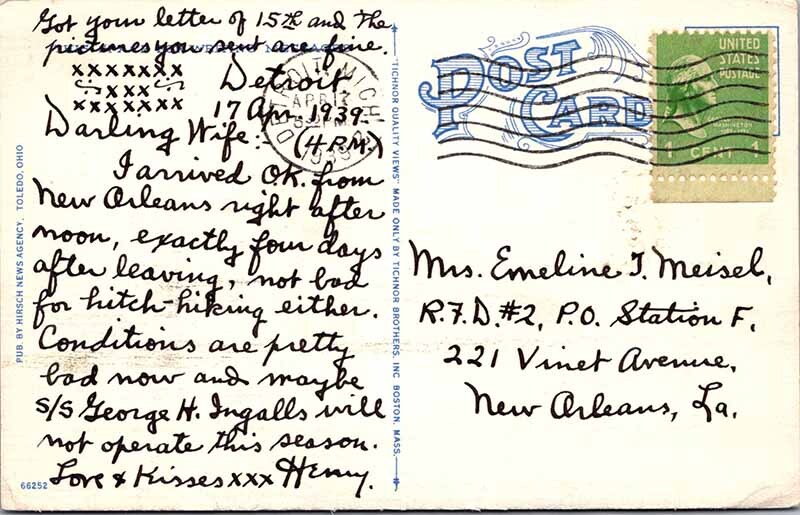 Got your letter of 15th and the
pictures you sent are fine.
xxxxxxx
xxxxxxx
Detroit
17 Apr. 1939.
Darling Wife:- (4 P.M.)
I arrived O.K. from
New Orleans right after
noon, exactly four days
after leaving, not bad
for hitch-hiking either.
Conditions are pretty
bad now and maybe
S/S George H. Ingalls will
not operate this season.
Love & Kisses xxx Henry.
66252
PUB. BY HIRSCH NEWS AGENCY, TOLEDO, OHIO
"TICHNOR QUALITY VIEWS" MADE ONLY BY TICHNOR BROTHERS, INC BOSTON, MASS.
DETROIT, MICH
APR 17
1939
POST
CARD
UNITED
STATES
POSTAGE
WASHINGTON
1 CENT 1
Mrs. Emeline T. Meisel,
R.F.D. #2, P.O. Station F,
221 Vinet Avenue,
New Orleans, La.